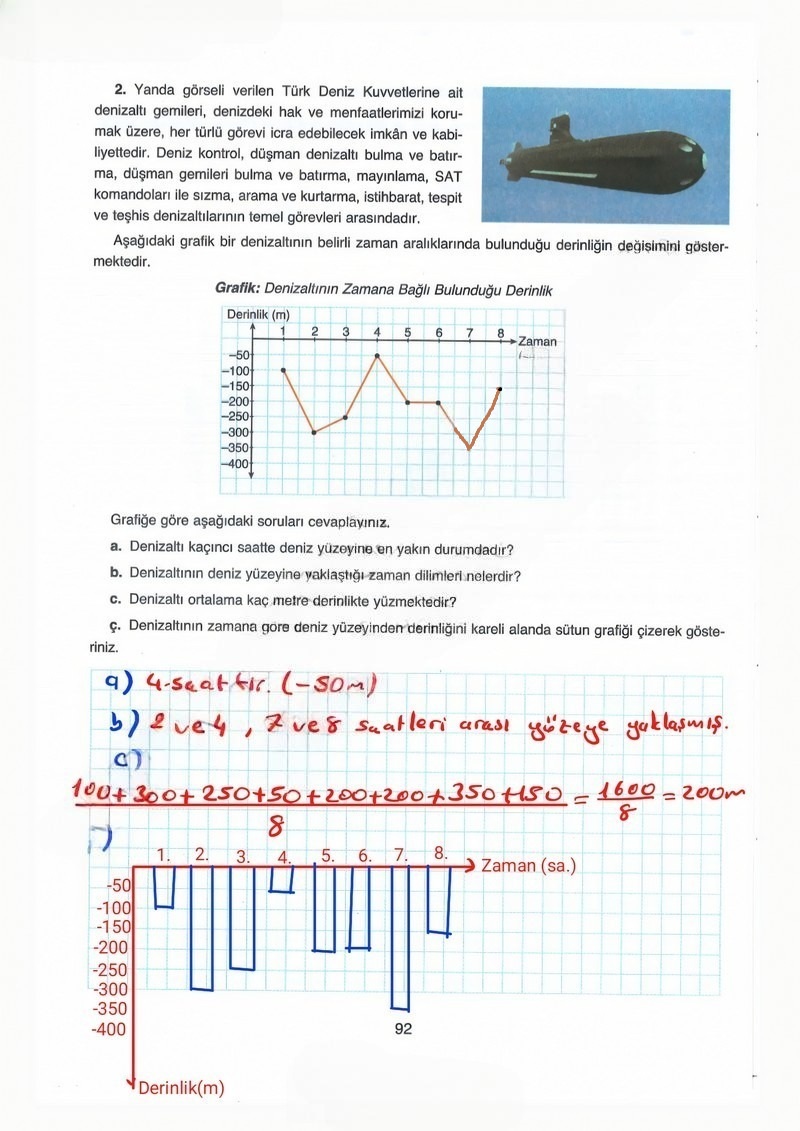 2. Yanda görseli verilen Türk Deniz Kuvvetlerine ait
denizaltı gemileri, denizdeki hak ve menfaatlerimizi koru-
mak üzere, her türlü görevi icra edebilecek imkân ve kabi-
liyettedir. Deniz kontrol, düşman denizaltı bulma ve batır-
ma, düşman gemileri bulma ve batırma, mayınlama, SAT
komandoları ile sızma, arama ve kurtarma, istihbarat, tespit
ve teşhis denizaltılarının temel görevleri arasındadır.
Aşağıdaki grafik bir denizaltının belirli zaman aralıklarında bulunduğu derinliğin değişimini göster-
mektedir.
Grafik: Denizaltının Zamana Bağlı Bulunduğu Derinlik
Derinlik (m)
1 2 3 4 5 6 7 8 Zaman
-50
-100
-150
-200
-250
-300
-350
-400
Grafiğe göre aşağıdaki soruları cevaplayınız.
a. Denizaltı kaçıncı saatte deniz yüzeyine en yakın durumdadır?
b. Denizaltının deniz yüzeyine yaklaştığı zaman dilimleri nelerdir?
c. Denizaltı ortalama kaç metre derinlikte yüzmektedir?
ç. Denizaltının zamana göre deniz yüzeyinden derinliğini kareli alanda sütun grafiği çizerek göste-
riniz.
a) 4.saattir. (-50m)
b) 2 ve 4, 7 ve 8 saatleri arası yüzeye yaklaşmış.
c)
100+300+250+50+200+200+350+150 = 1600 = 200m
8 8
1. 2. 3. 4. 5. 6. 7. 8. Zaman (sa.)
-50
-100
-150
-200
-250
-300
-350
-400
92
Derinlik(m)